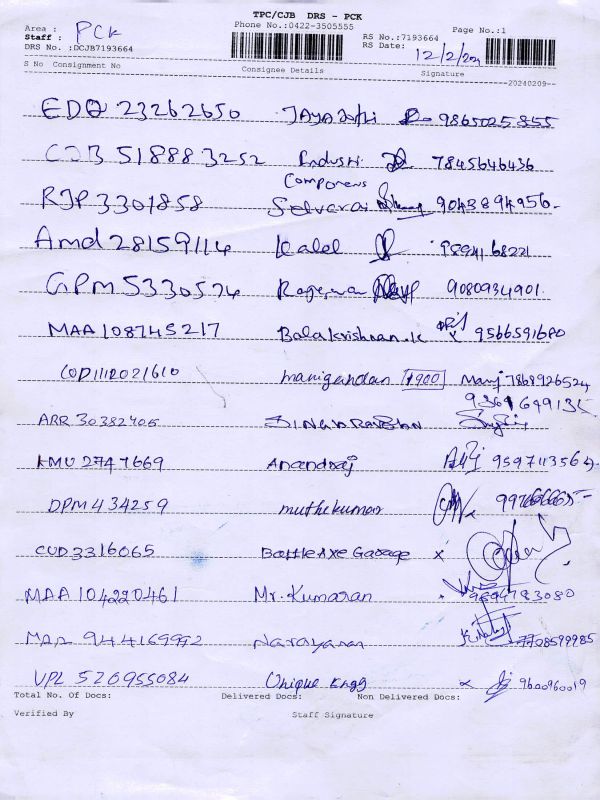 TPC/CJB DRS - PCK
Phone No.:0422-3505555
Area : PCK
Staff :
DRS No. :DCJB7193664
RS No.:7193664
RS Date: 12/2/2
Page No.:1
S No Consignment No Consignee Details Signature
20240209
EDQ 23262650 9865025855
518883252 Industri 7845646436
Components
RJP 3301858 Selvaraj 9043894956
Amd 28159114 Kalel
GPM 5330574 9080934901
MAA 108745217 Balakrishnan.K 9566591680
COD1112021610 manigandan 1900 Mani 7868926524
9361649135
ARR 30382705
KMU 2747669 Anandraj 9597113564
DPM 434259 muthukumar
CUD3316065 BattleAxe Garage x
MAA 104220461 Mr. Kumaran
944169992 Narayanan 7708599985
VPL 520955084 Unique Engg x 9600960019
Total No. Of Docs: Delivered Docs: Non Delivered Docs:
Verified By Staff Signature